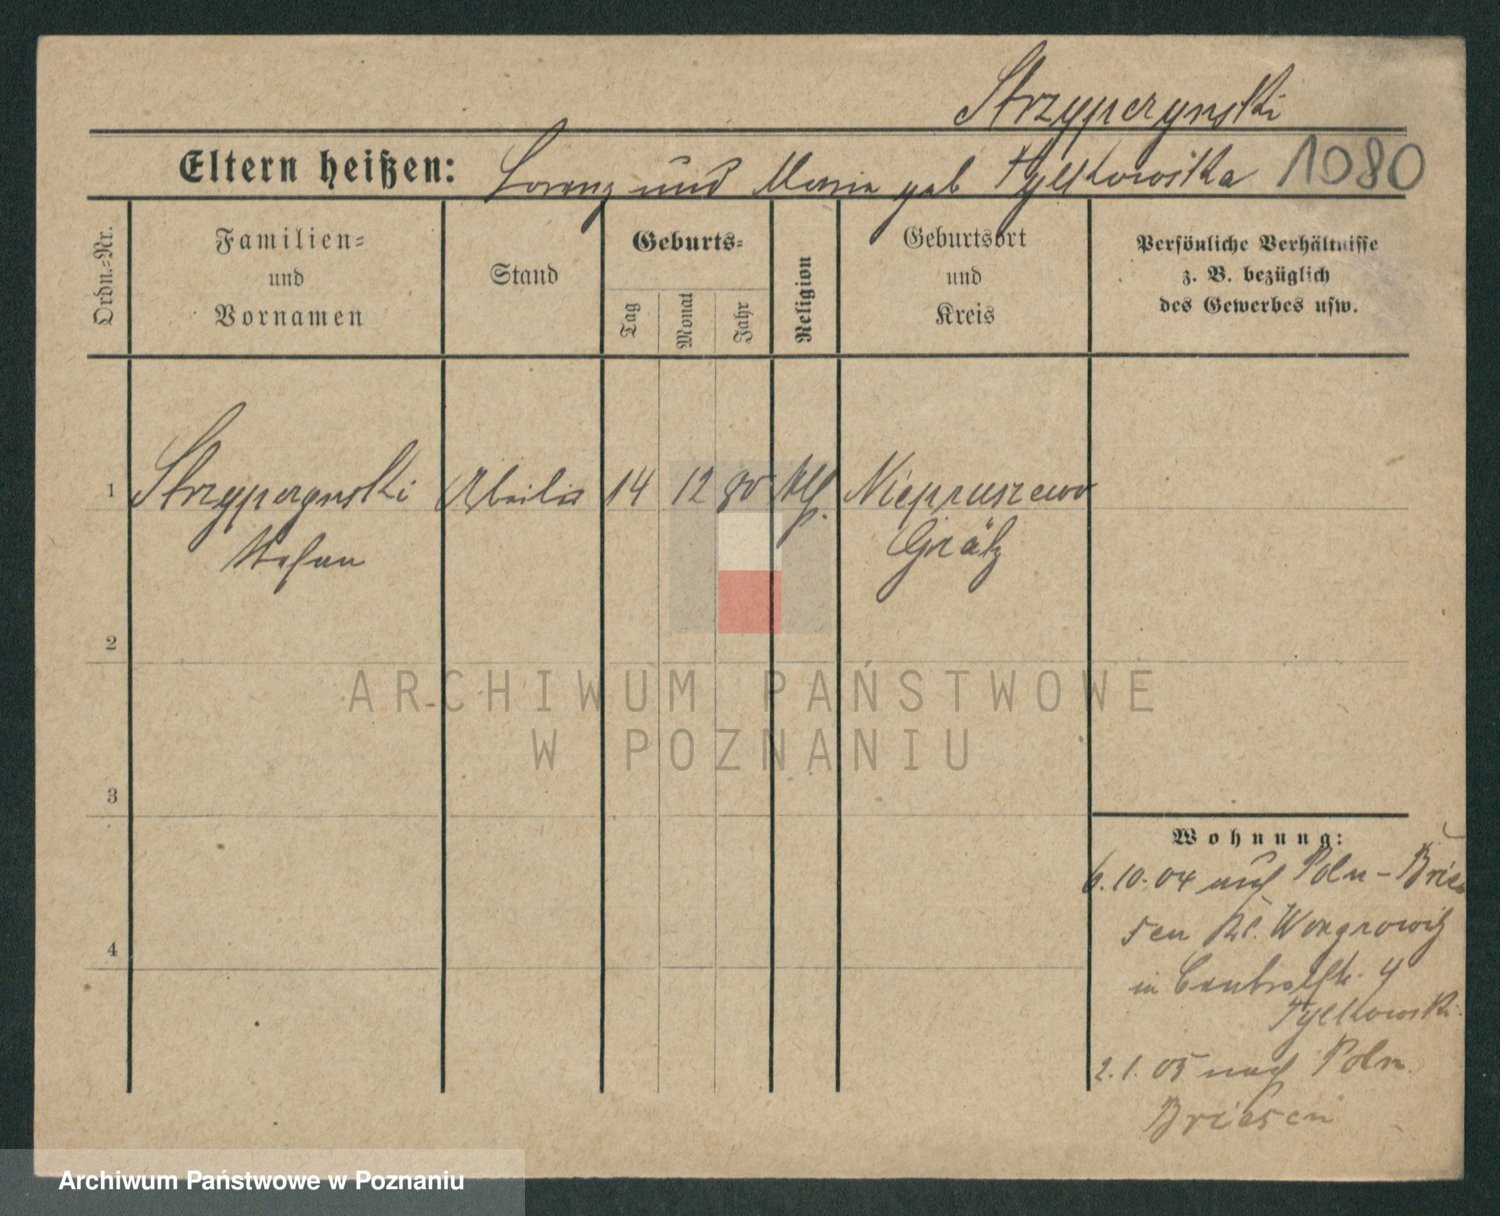 Strzypczynski
Eltern heißen: Lorenz und Maria geb Tylkowska 1080
Ordn.-Nr.
Familien-
und
Vornamen
Stand
Geburts-
Tag
Monat
Jahr
Religion
Geburtsort
und
Kreis
Persönliche Verhältnisse
z. B. bezüglich
des Gewerbes usw.
1 Strzypczynski Arbeiter 14 12 80 kth. Niepruszewo
Stefan Grätz
2
3
4
Wohnung:
6.10.04 auf Poln-Brie
sen Kr. Wongrowitz
in Centralstr. 4
Tylkowski.
2.1.05 nach Poln.
Briesen
ARCHIWUM PAŃSTWOWE
W POZNANIU
Archiwum Państwowe w Poznaniu